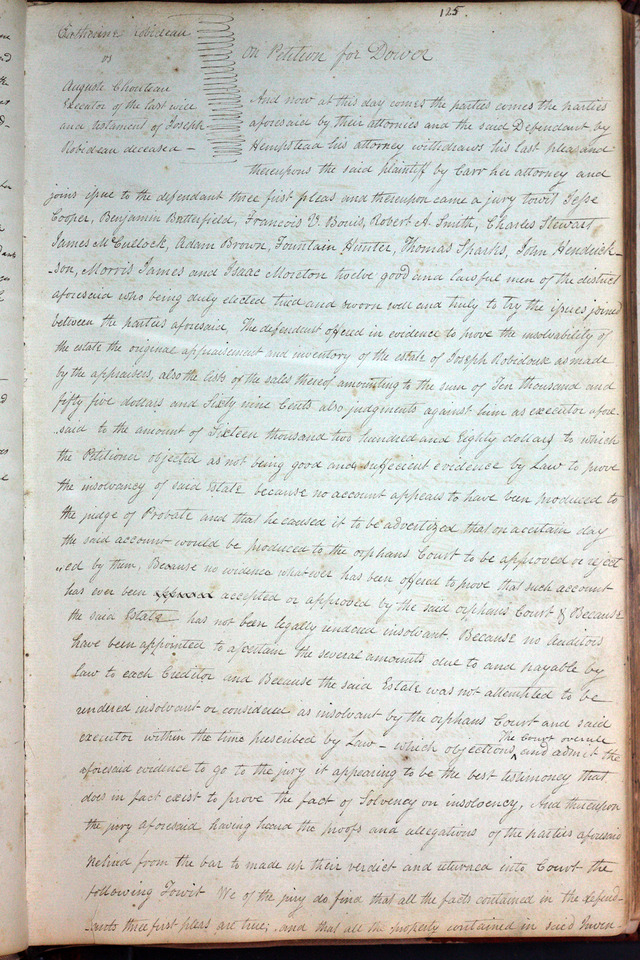 125
Catherine Robideau
vs
Auguste Chouteau
Executor of the last will
and testament of Joseph
Robideau deceased —
On Petition for Dower
And now at this day comes the parties comes the parties
aforesaid by their attornies and the said Defendant by
Hempstead his attorney withdraws his last pleas and
thereupons the said plaintiff by Carr her attorney and
joins issue to the defendant three first pleas and thereupon came a jury towit Jesse
Cooper, Benjamin Butterfield, Francois V. Bouis, Robert A. Smith, Charles Stewart
James McCuelock, Adam Brown, Fountain Hunter, Thomas Sparks, John Hendrick-
-son, Morris James and Isaac Moreton twelve good and lawful men of the district
aforesaid who being duly elected tried and sworn well and truly to try the issues joined
between the parties aforesaid, The defendent offered in evidence to prove the insolvability of
the estate the original appraisement and inventory of the estate of Joseph Robidoux as made
by the appraisers, also the lists of the sales thereof amounting to the sum of Ten thousand and
fifty five dollars and Sixty nine Cents also judgments against him as executor afore-
-said to the amount of Sixteen thousand two hundred and Eighty dollars, to which
the Petitioner objected as not being good and sufficient evidence by Law to prove
the insolvancy of said Estate because no account appears to have been produced to
the judge of Probate and that he caused it to be advertized that on a certain day
the said account would be produced to the orphans Court to be approved or reject
"ed by them, Because no evidence whatever has been offered to prove that such account
has ever been accepted or approved by the said orphans Court & Because
the said Estate has not been legally rendered insolvant. Because no Auditors
have been appointed to ascertain the several amounts due to and payable by
Law to each Creditor and Because the said Estate was not attempted to be
rendered insolvant or considered as insolvant by the orphans Court and said
executor within the time prescribed by Law — which objections, The Court overule and admit the
aforesaid evidence to go to the jury it appearing to be the best testimoney that
does in fact exist to prove the fact of Solvency or insolvency, And thereupon
the jury aforesaid having heard the proofs and allegations of the parties aforesaid
Retired from the bar to made up their verdict and returned into Court the
following Towit We of the jury do find that all the facts contained in the defend-
-ants three first pleas are true; and that all the property contained in said Inven